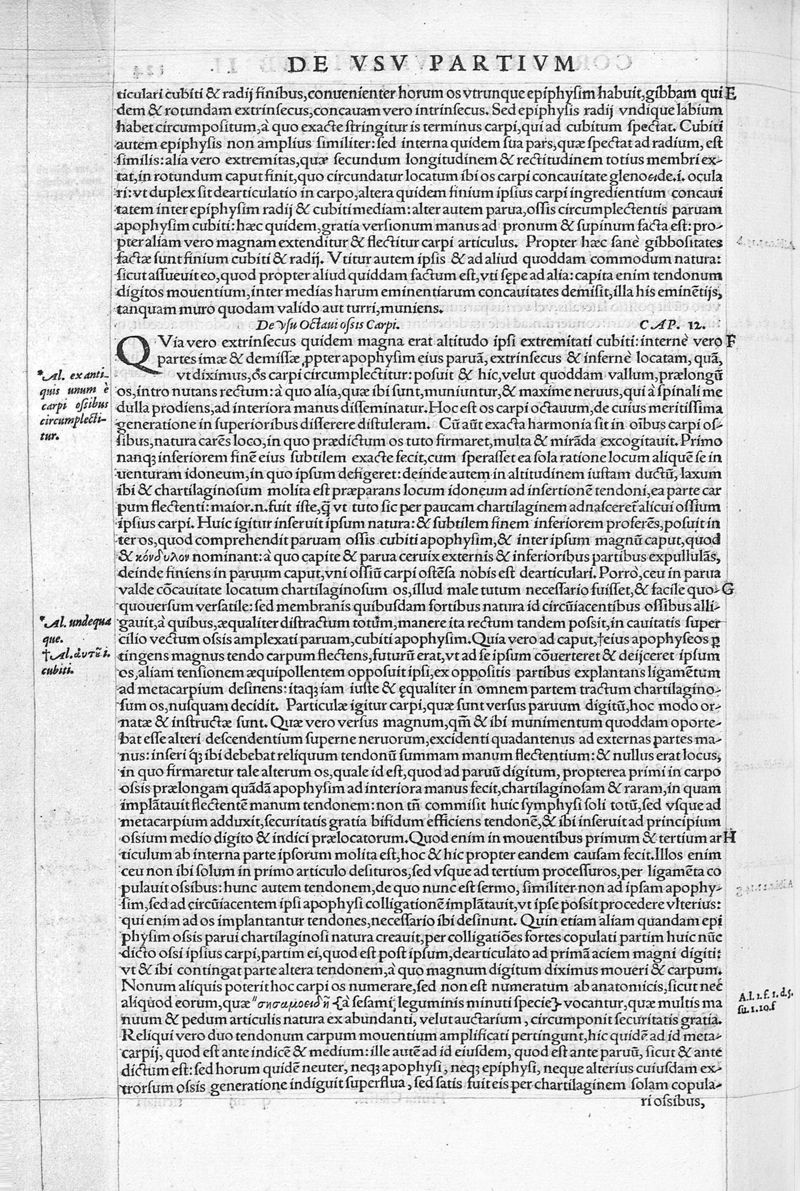 DE VSV PARTIVM
ticulari cubiti & radij finibus,conuenienter horum os vtrunque epiphysim habuit,gibbam qui E
dem & rotundam extrinsecus,concauam vero intrinsecus. Sed epiphysis radij vndique labium
habet circumpositum,à quo exacte stringitur is terminus carpi,qui ad cubitum spectat. Cubiti
autem epiphysis non amplius similiter:sed interna quidem sua pars,quæ spectat ad radium, est
similis:alia vero extremitas,quæ secundum longitudinem & rectitudinem totius membri ex-
tat,in rotundum caput finit,quo circundatur locatum ibi os carpi concauitate glenoeide.i. ocula
ri:vt duplex sit dearticulatio in carpo,altera quidem finium ipsius carpi ingredientium concaui
tatem inter epiphysim radij & cubiti mediam:alter autem parua,ossis circumplectentis paruam
apophysim cubiti:hæc quidem,gratia versionum manus ad pronum & supinum facta est:pro-
pter aliam vero magnam extenditur & flectitur carpi articulus. Propter hæc sanè gibbositates
factæ sunt finium cubiti & radij. Vtitur autem ipsis & ad aliud quoddam commodum natura:
sicut assueuit eo,quod propter aliud quiddam factum est,vti sępe ad alia:capita enim tendonum
digitos mouentium,inter medias harum eminentiarum concauitates demisit,illa his eminētijs,
tanquam muro quodam valido aut turri,muniens.
De vsu Octaui ossis Carpi. CAP. 12.
QVia vero extrinsecus quidem magna erat altitudo ipsi extremitati cubiti:internè vero F
partes imæ & demissæ,ꝓpter apophysim eius paruā, extrinsecus & infernè locatam, quā,
vt diximus,ôs carpi circumplectitur:posuit & hic,velut quoddam vallum,prælongū
os,intro nutans rectum:à quo alia,quæ ibi sunt,muniuntur,& maxime neruus,qui à spinali me
dulla prodiens,ad interiora manus disseminatur.Hoc est os carpi octauum,de cuius meritissima
generatione in superioribus differere distuleram. Cū aūt exacta harmonia sit in oībus carpi os-
sibus,natura carēs loco,in quo prædictum os tuto firmaret,multa & mirāda excogitauit. Primo
nanqȝ inferiorem finē eius subtilem exacte fecit,cum sperasset ea sola ratione locum aliquē se in
uenturam idoneum,in quo ipsum defigeret:deinde autem in altitudinem iustam ductū, laxum
ibi & chartilaginosum molita est præparans locum idoneum ad insertionē tendoni,ea parte car
pum flectenti:maior.n.fuit iste,q̄ vt tuto sic per paucam chartilaginem adnasceret̄ alicui ossium
ipsius carpi. Huic igitur inseruit ipsum natura:& subtilem finem inferiorem proferēs,posuit in
ter os,quod comprehendit paruam ossis cubiti apophysim,& inter ipsum magnū caput,quod
& κόνδυλον nominant:à quo capite & parua ceruix externis & inferioribus partibus expullulās,
deinde finiens in paruum caput,vni ossiū carpi ostēsa nobis est dearticulari. Porrò,ceu in parua
valde cōcauitate locatum chartilaginosum os,illud male tutum necessario fuisset,& facile quo- G
quouersum versatile:sed membranis quibusdam fortibus natura id circūiacentibus ossibus alli-
gauit,à quibus,æqualiter distractum totum,manere ita rectum tandem possit,in cauitatis super
cilio vectum ossis amplexati paruam,cubiti apophysim.Quia vero ad caput,†eius apophyseos ꝑ
tingens magnus tendo carpum flectens,futurū erat,vt ad se ipsum cōuerteret & deijceret ipsum
os,aliam tensionem æquipollentem opposuit ipsi,ex oppositis partibus explantans ligamētum
ad metacarpium desinens:itaqȝ iam iuste & ęqualiter in omnem partem tractum chartilagino-
sum os,nusquam decidit. Particulæ igitur carpi,quæ sunt versus paruum digitū,hoc modo or-
natæ & instructæ sunt. Quæ vero versus magnum,qm̄ & ibi munimentum quoddam oporte-
bat esse alteri descendentium superne neruorum,excidenti quadantenus ad externas partes ma-
nus:inseri q́ȝ ibi debebat reliquum tendonū summam manum flectentium:& nullus erat locus,
in quo firmaretur tale alterum os,quale id est,quod ad paruū digitum, propterea primi in carpo
ossis prælongam quādā apophysim ad interiora manus fecit,chartilaginosam & raram,in quam
implātauit flectentē manum tendonem:non tm̄ commisit huic symphysi soli totū,sed vsque ad
metacarpium adduxit,securitatis gratia bifidum efficiens tendonē,& ibi inseruit ad principium
ossium medio digito & indici prælocatorum.Quod enim in mouentibus primum & tertium ar H
ticulum ab interna parte ipsorum molita est,hoc & hic propter eandem causam fecit.Illos enim
ceu non ibi solum in primo articulo desituros,sed vsque ad tertium processuros,per ligamēta co
pulauit ossibus: hunc autem tendonem,de quo nunc est sermo, similiter non ad ipsam apophy-
sim,sed ad circūiacentem ipsi apophysi colligationē implātauit,vt ipse possit procedere vlterius:
qui enim ad os implantantur tendones,necessario ibi desinunt. Quin etiam aliam quandam epi
physim ossis parui chartilaginosi natura creauit,per colligatiōes fortes copulati partim huic nūc
dicto ossi ipsius carpi,partim ei,quod est post ipsum,dearticulato ad primā aciem magni digiti:
vt & ibi contingat parte altera tendonem,à quo magnum digitum diximus moueri & carpum.
Nonum aliquis poterit hoc carpi os numerare,sed non est numeratum ab anatomicis,sicut nec
aliquod eorum,quæ "σησαμοειδῆ {à sesami,leguminis minuti specie} vocantur,quæ multis ma
nuum & pedum articulis natura ex abundanti, velut auctarium, circumponit securitatis gratia.
Reliqui vero duo tendonum carpum mouentium amplificati pertingunt,hic quidē ad id meta-
carpij, quod est ante indicē & medium:ille autē ad id eiusdem, quod est ante paruū, sicut & ante
dictum est:sed horum quidē neuter, neqȝ apophysi, neqȝ epiphysi, neque alterius cuiusdam ex-
trorsum ossis generatione indiguit superflua, sed satis fuit eis per chartilaginem solam copula-
ri ossibus,
*Al. ex anti-
quis unum è
carpi ossibus
circumplecti-
tur.
*Al. undequa
que.
†Al.αὐτῦ i.
cubiti.
A.l.1.f.1.d.5.
su.1.10.f